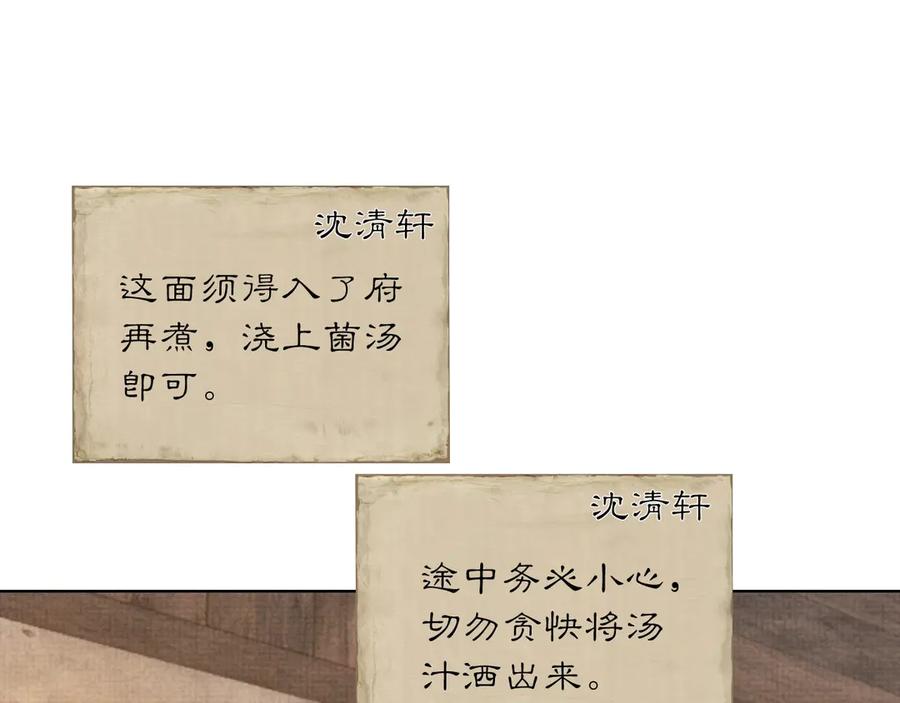 沈清轩
这面须得入了府
再煮，浇上菌汤
即可。
沈清轩
途中务必小心，
切勿贪快将汤
汁洒出来。